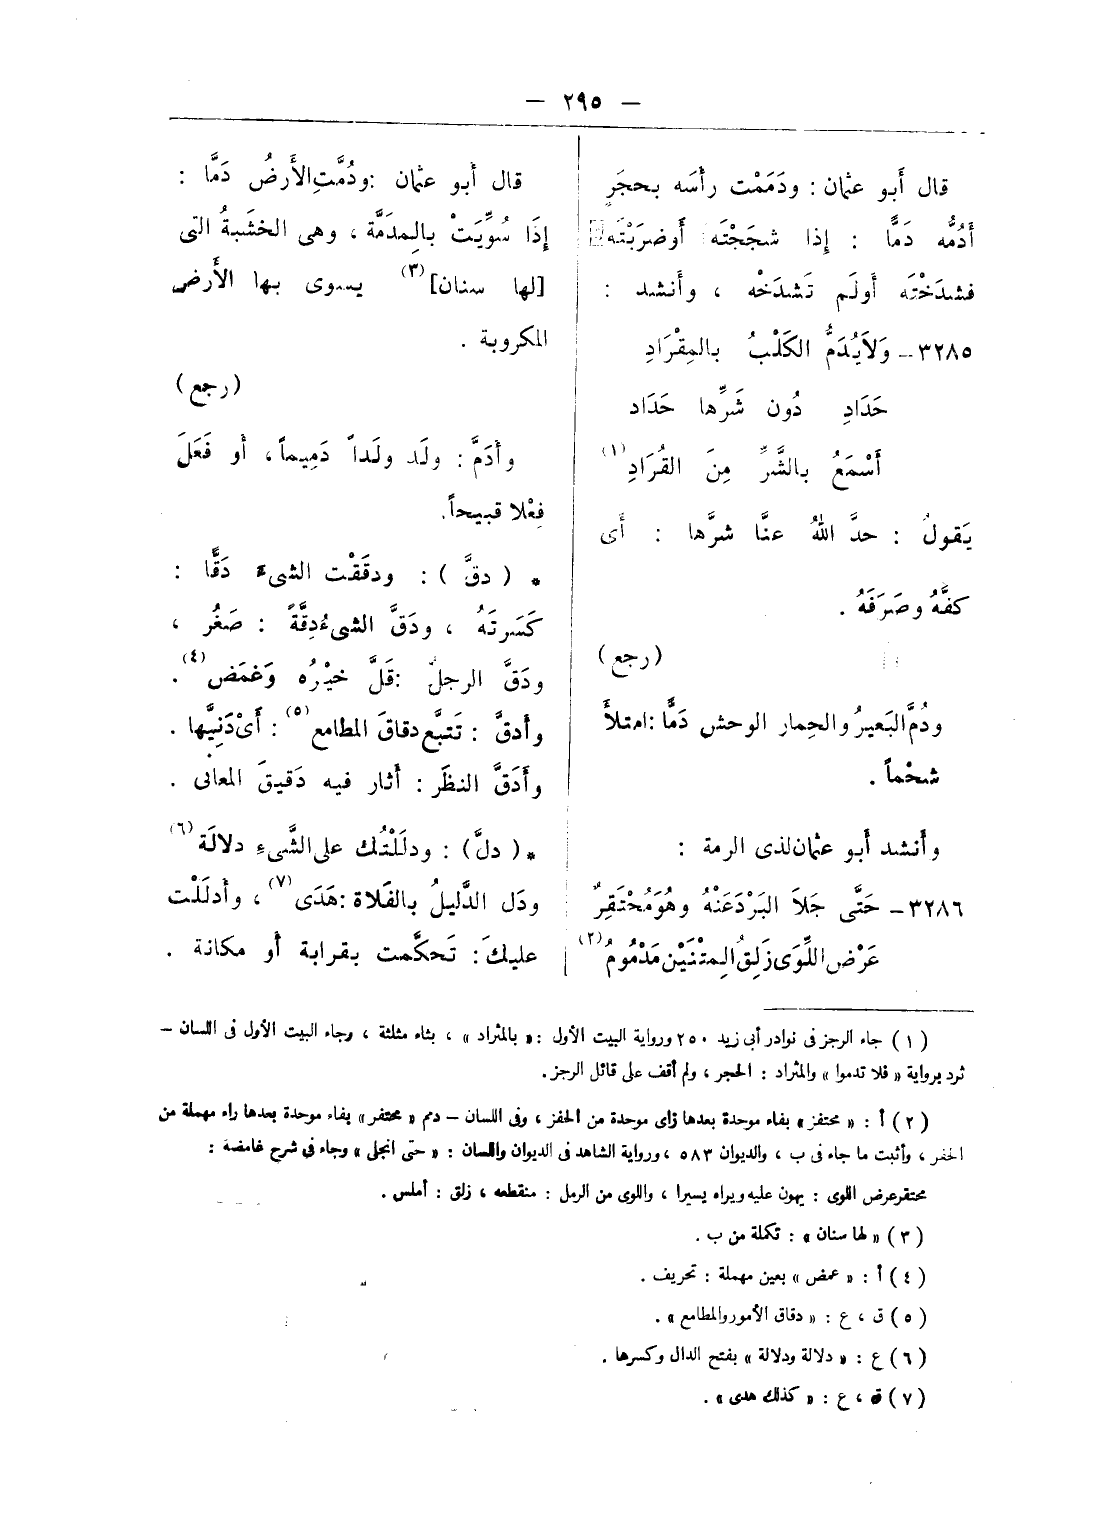 — ٢٩٥ —
قال أَبو عثمان : ودَمَمْت رأْسَه بحجَرٍ
أَدُمُّه دَمًّا : إِذا شجَجْتَه أَوضرَبْتَه
فشدَخْتَه أَولَم تَشدَخْه ، وأَنشد :
٣٢٨٥ – وَلاَيُدَمُّ الكَلْبُ بالمِقْرَادِ
حَدَادِ دُون شَرِّها حَدَاد
أَسْمَعُ بالشَّرِّ مِنَ القُرَادِ (١)
يَقولُ : حدَّ اللهُ عنَّا شرَّها : أَى
كفَّهُ وصَرَفَهُ .
(رجع)
ودُمَّ البَعيرُ والحِمار الوحش دَمًّا : امتلأَ
شحْماً .
وأَنشد أَبو عثمان لذى الرمة :
٣٢٨٦ – حَتَّى جَلاَ البَرْدَعَنْهُ وهُوَمُحْتَقِرٌ
عَرْض اللِّوَى زَلِقُ المِتْنَيْن مَدْمُومُ (٢)
قال أَبو عثمان : ودُمَّتِ الأَرضُ دَمًّا :
إِذَا سُوِّيَتْ بالمِدَمَّة ، وهى الخشَبةُ التى
[لها سنان] (٣) يسوى بها الأَرض
المكروبة .
(رجع)
وأَدَمَّ : ولَد ولَداً دَمِيماً ، أو فَعَلَ
فِعْلا قبيحاً.
* ( دقَّ ) : ودقَقْت الشىء دَقًّا :
كَسَرتَهُ ، ودَقَّ الشىءُ دِقَّةً : صَغُر ،
ودَقَّ الرجلُ : قَلَّ خيْرُه وَغمَض (٤) .
وأَدقَّ : تَتبَّع دقاقَ المطامع (٥) : أَىْ دَنِيَّها .
وأَدَقَّ النظَر : أَثار فيه دَقيقَ المعانى .
* ( دلَّ ) : ودلَلْتُك على الشَّىءِ دلالَة (٦)
ودَل الدَّليلُ بالفَلاة : هَدَى (٧) ، وأَدلَلْت
عليكَ : تَحكَّمت بقرابة أَو مكانة .
( ١ ) جاء الرجز فى نوادر أبى زيد ٢٥٠ ورواية البيت الأول : « بالمثراد » ، بثاء مثلثة ، وجاء البيت الأول فى اللسان –
ثرد برواية « فلا تدموا » والمثراد : الحجر ، ولم أقف على قائل الرجز .
( ٢ ) أ : « محتفز » بفاء موحدة بعدها زاى موحدة من الحفز ، وفى اللسان – دمم « محتفر » بفاء موحدة بعدها راء مهملة من
الحفر ، وأثبت ما جاء فى ب ، والديوان ٥٨٣ ، ورواية الشاهد فى الديوان واللسان : « حتى انجلى » وجاء فى شرح غامضة :
محتقرعرض اللوى : يهون عليه ويراه يسيرا ، واللوى من الرمل : منقطعه ، زلق : أملس .
( ٣ ) « لها سنان » : تكملة من ب .
( ٤ ) أ : « عمض » بعين مهملة : تحريف .
( ٥ ) ق ، ع : « دقاق الأمور والمطامع » .
( ٦ ) ع : « دلالة ودلالة » بفتح الدال وكسرها .
( ٧ ) ق ، ع : « كذلك هدى » .